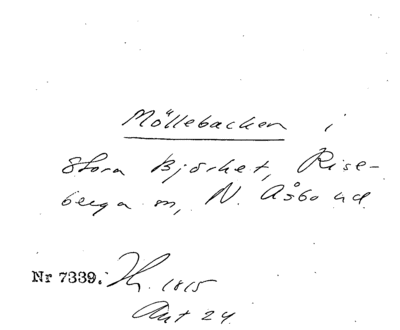 Möllebacken i
Stora Björket, Rise-
berga sn, N. Åsbo hd
Nr 7339. 1815
Akt 24